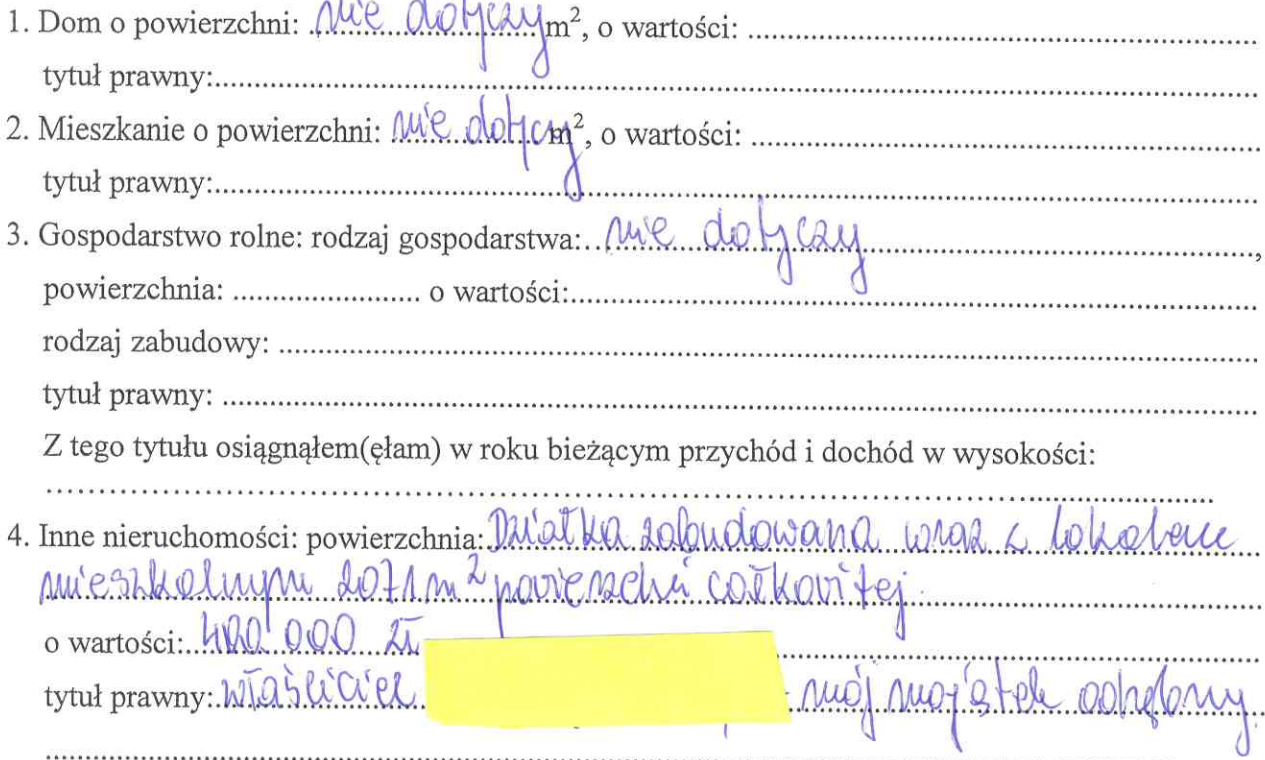 1. Dom o powierzchni: nie dotyczy m², o wartości: ........................
tytuł prawny:........................
2. Mieszkanie o powierzchni: nie dotyczy m², o wartości: ........................
tytuł prawny:........................
3. Gospodarstwo rolne: rodzaj gospodarstwa: nie dotyczy........................,
powierzchnia: ........................ o wartości:........................
rodzaj zabudowy: ........................
tytuł prawny: ........................
Z tego tytułu osiągnąłem(ęłam) w roku bieżącym przychód i dochód w wysokości:
........................
4. Inne nieruchomości: powierzchnia: Działka zabudowana wraz z lokalem
mieszkalnym 2071 m² powierzchni całkowitej.
o wartości: 400 000 zł
tytuł prawny: właściciel mój majątek odrębny.
........................